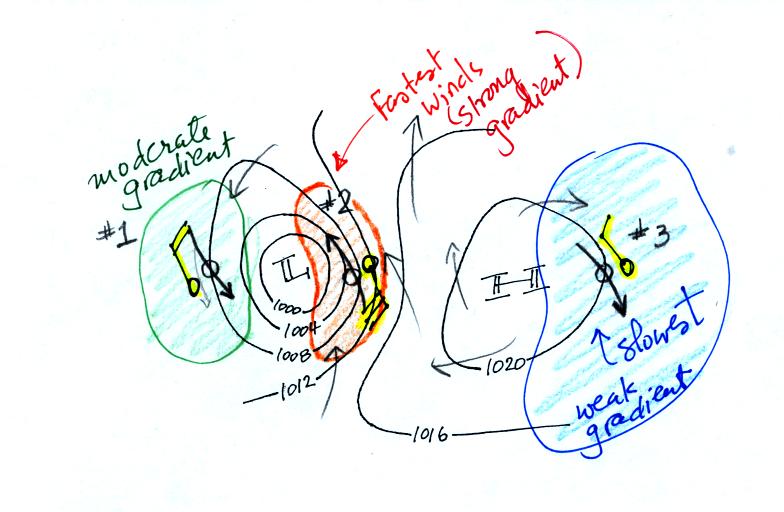 Fastest
winds
(strong
gradient)
moderate
gradient
#1
#2
L
H
#3
1000
1004
1008
1012
1020
1016
slowest
weak
gradient